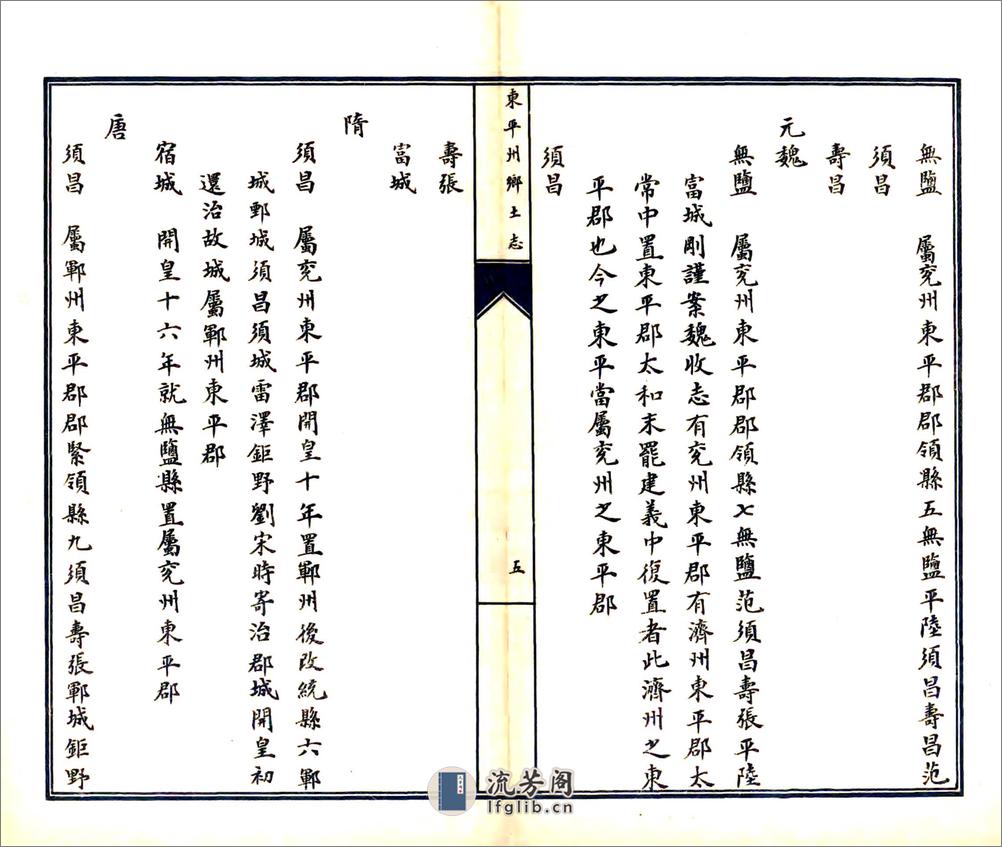 無鹽　屬兖州東平郡郡領縣五無鹽平陸須昌壽昌范
須昌
壽昌
元魏
無鹽　屬兖州東平郡郡領縣七無鹽范須昌壽張平陸
富城剛謹案魏收志有兖州東平郡有濟州東平郡太
常中置東平郡太和末罷建義中復置者此濟州之東
平郡也今之東平當屬兖州之東平郡
須昌
東平州鄉土志
五
壽張
富城
隋
須昌　屬兖州東平郡開皇十年置鄆州後改統縣六鄆
城鄄城須昌須城雷澤鉅野劉宋時寄治郡城開皇初
還治故城屬鄆州東平郡
宿城　開皇十六年就無鹽縣置屬兖州東平郡
唐
須昌　屬鄆州東平郡郡緊領縣九須昌壽張鄆城鉅野
流芳阁
lfglib.cn